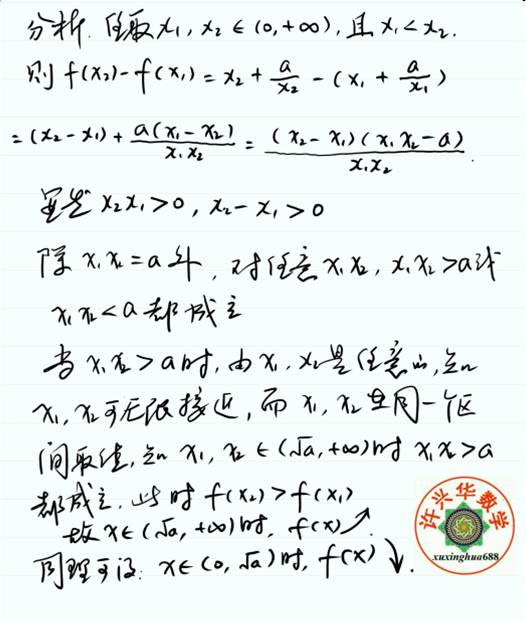 分析. 任取 x₁, x₂ ∈ (0, +∞), 且 x₁ < x₂.
则 f(x₂) - f(x₁) = x₂ + a/x₂ - (x₁ + a/x₁)
= (x₂ - x₁) + a(x₁ - x₂)/x₁x₂ = (x₂ - x₁)(x₁x₂ - a)/x₁x₂.
x₂x₁ > 0, x₂ - x₁ > 0
除 x₁x₂ = a 外, 对任意 x₁x₂, x₁x₂ > a 或
x₁x₂ < a 都成立
当 x₁x₂ > a 时, 由 x₁, x₂ 是任意的, 知
x₁, x₂ 可无限接近, 而 x₁, x₂ 在同一个区
间取值, 知 x₁, x₂ ∈ (√a, +∞) 时 x₁x₂ > a
都成立. 此时 f(x₂) > f(x₁)
故 x ∈ (√a, +∞) 时, f(x) ↗
同理可证: x ∈ (0, √a) 时, f(x) ↘.
许兴华数学
xuxinghua688